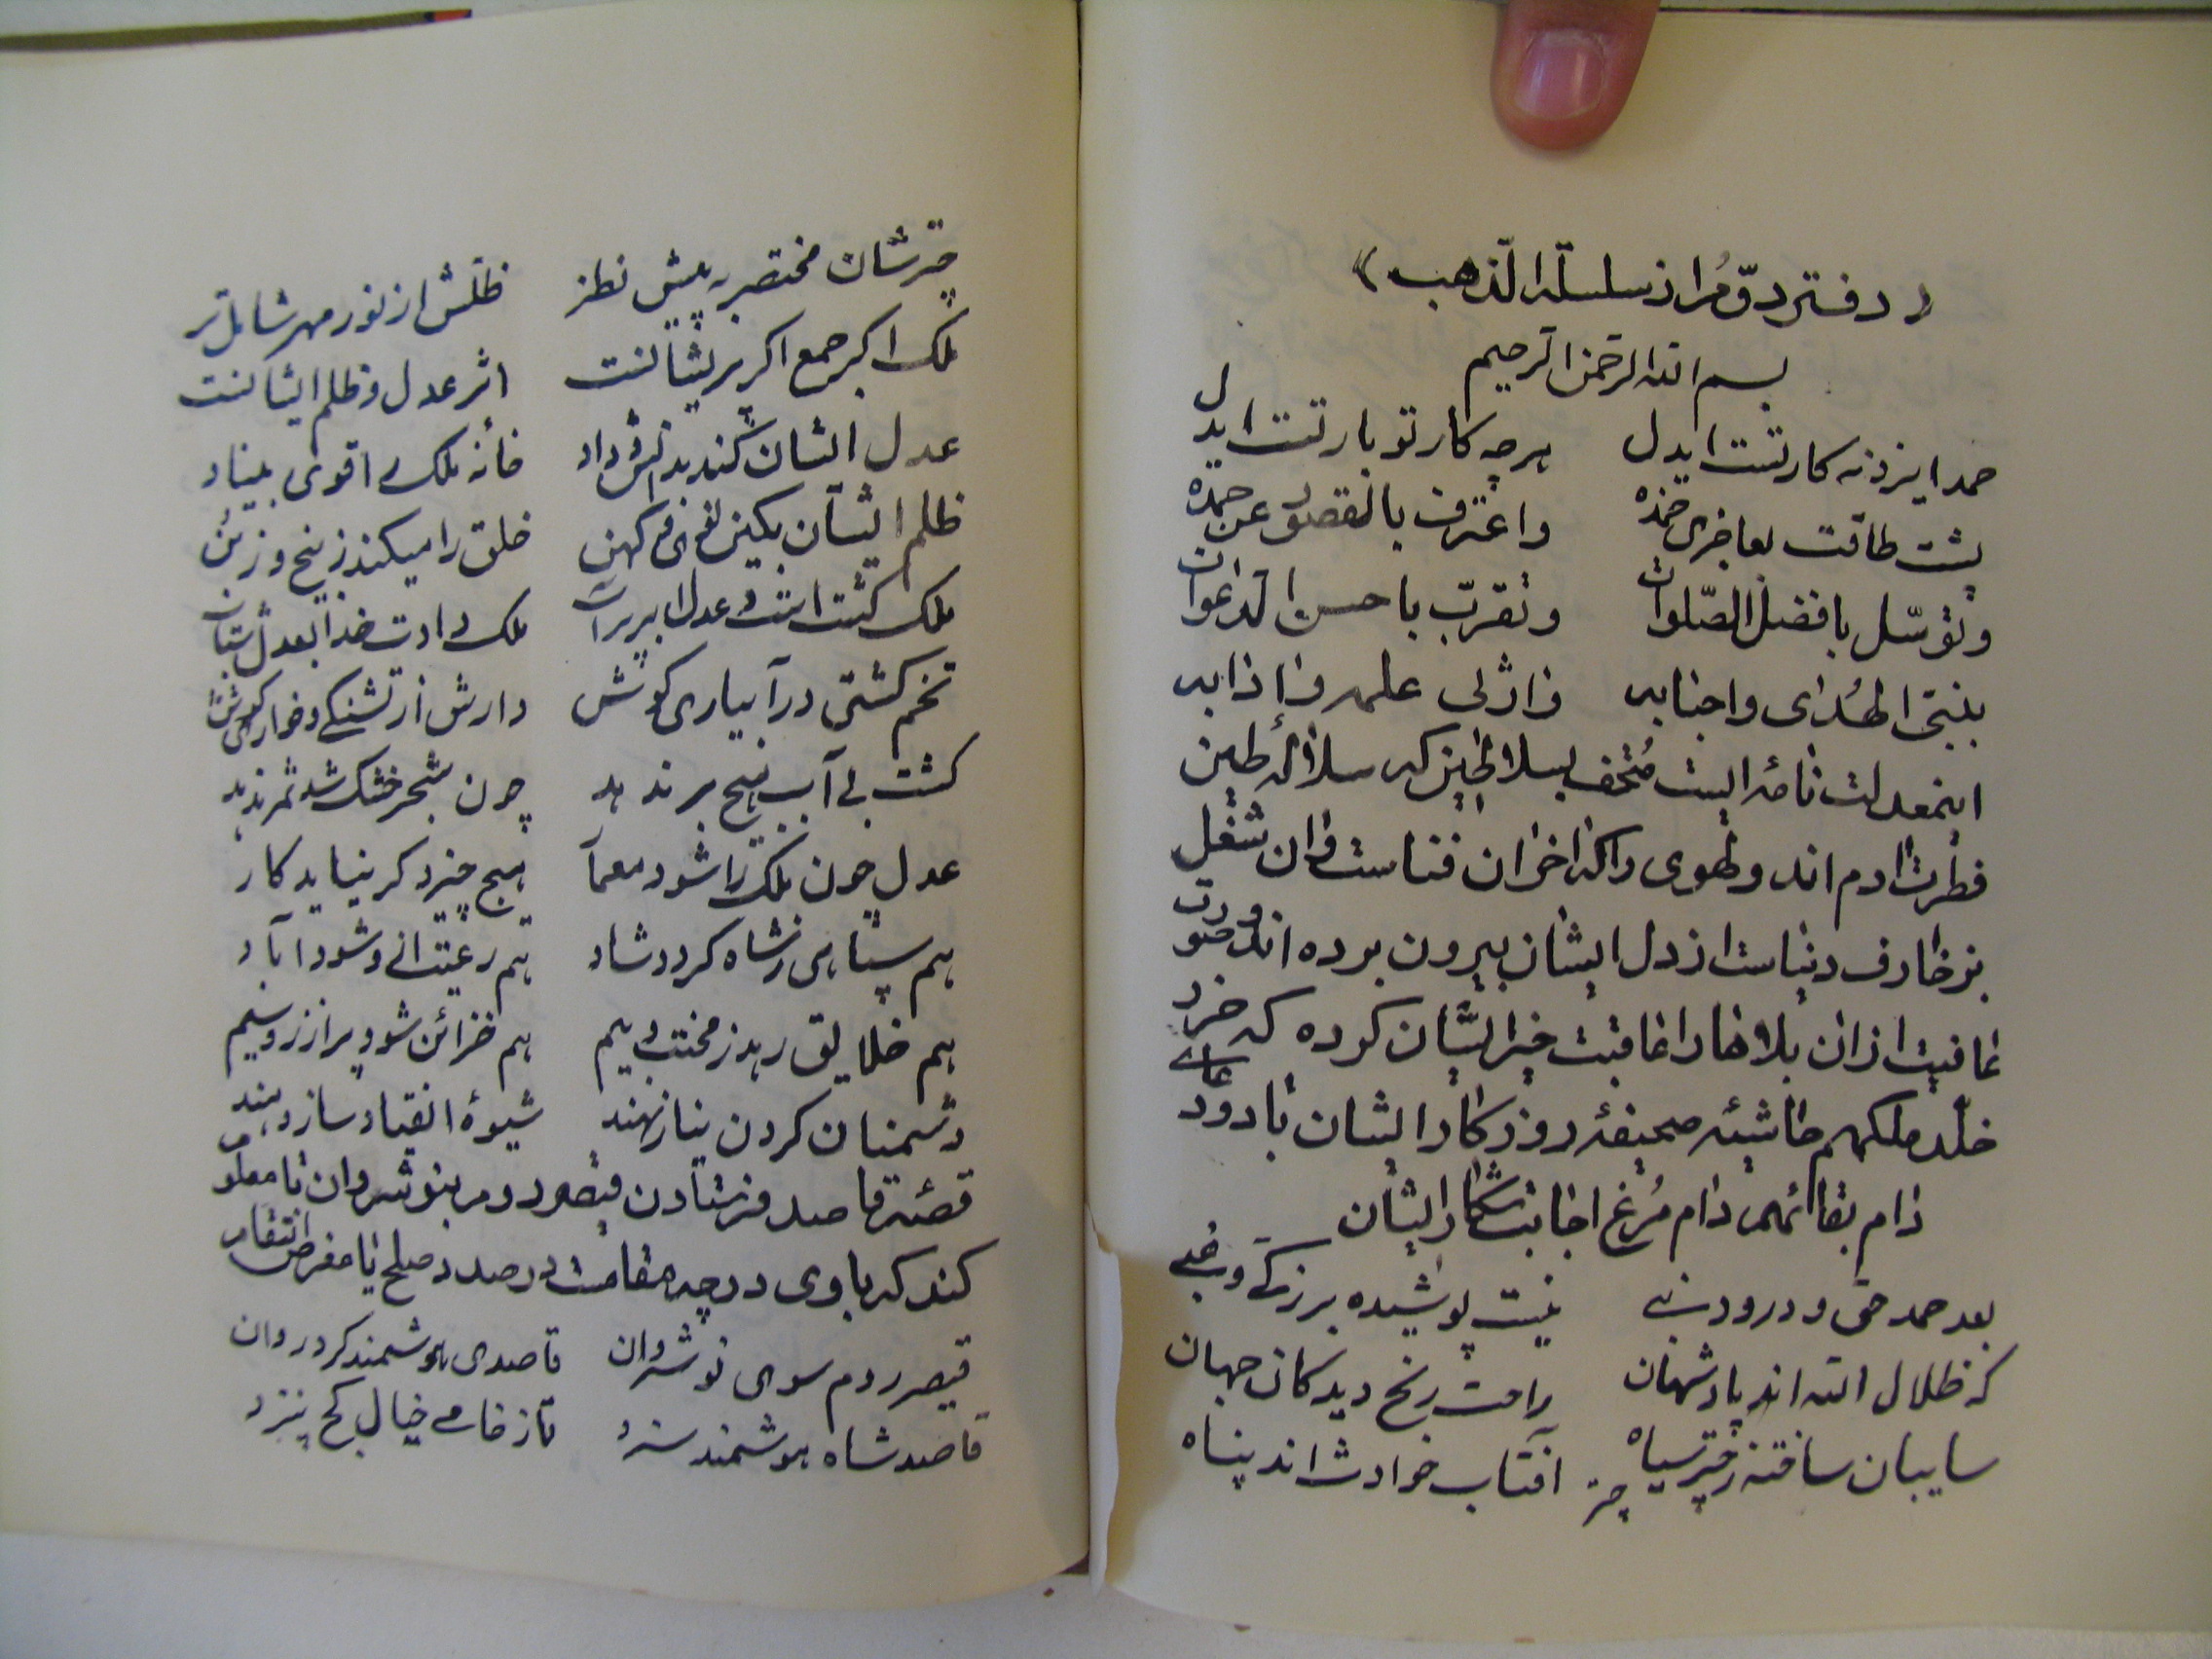 (دفتر دوّم از سلسلة الذهب)
بسم الله الرحمن الرحيم
حمد ایزد نه کار تست ایدل هر چه کار تو بار تست ایدل
پشت طاقت بعاجزی خم ده واعترف بالقصور عن حمده
وتوسّل بافضل الصّلوات وتقرب باحسن الدعوات
بنبیّ الهُدای واحبابه وارثی علمه وآدابه
اینمعدلت نامه ایست مُتحف بسلاطین که سلالهٔ طین
فطرت آدم اند و طهوی را که اخزان فناست وان شغل
بزخارف دنیاست از دل ایشان بیرون برده اند وصورت
عاقبت از ان بلاها را عاقبت خیر ایشان کرده که خرد
خلّد ملکهم حاشیه صحیفهٔ روزکار ایشان باد ودعای
دام بقائهم دام مُرغ اجابت شکار ایشان
بعد حمد حق و درود نبی نیست پوشیده بر زکی وغبی
که ظلال الله اند پادشهان راحت رنج دیدکان جهان
سایبان ساخته ز چتر سیاه ز آفتاب حوادث اند پناه
چتر
چترشان مختصر به پیش نظر ظلّش از نور مهر شامل تر
ملک اکر جمع اکر پریشانست اثر عدل و ظلم ایشانست
عدل ایشان کند بدانش وداد خانه ملک را قوی بنیاد
ظلم ایشان بکین نو وکهن خلق را میکند ز بیخ و ز بن
ملک کشت است وعدل ابر برآن ملک دادت خدا بعدل ستان
تخم کشتی در آبیاری کوش دارش از تشنکی وخواری کوش
کشت بی آب هیچ بر ندهد چون شجر خشک شد ثمر ندهد
عدل چون ملک را شود معمار هیچ چیز دکر نیاید کار
هم سپاهی ز شاه کردد شاد هم رعیت ازو شود آباد
هم خلایق رهد ز محنت و بیم هم خزائن شود پر از زر وسیم
دشمنان کردن نیاز نهند شیوهٔ انقیاد ساز دهند
قصّه قاصد فرستادن قیصر روم بنوشروان تا معلوم
کند که با وی در چه مقامست در صدد صلح یا معرض انتقام
قیصر روم سوی نوشروان قاصدی هوشمند کرد روان
قاصد شاه هوشمند سزد تا ز خامی خیال کج نپزد